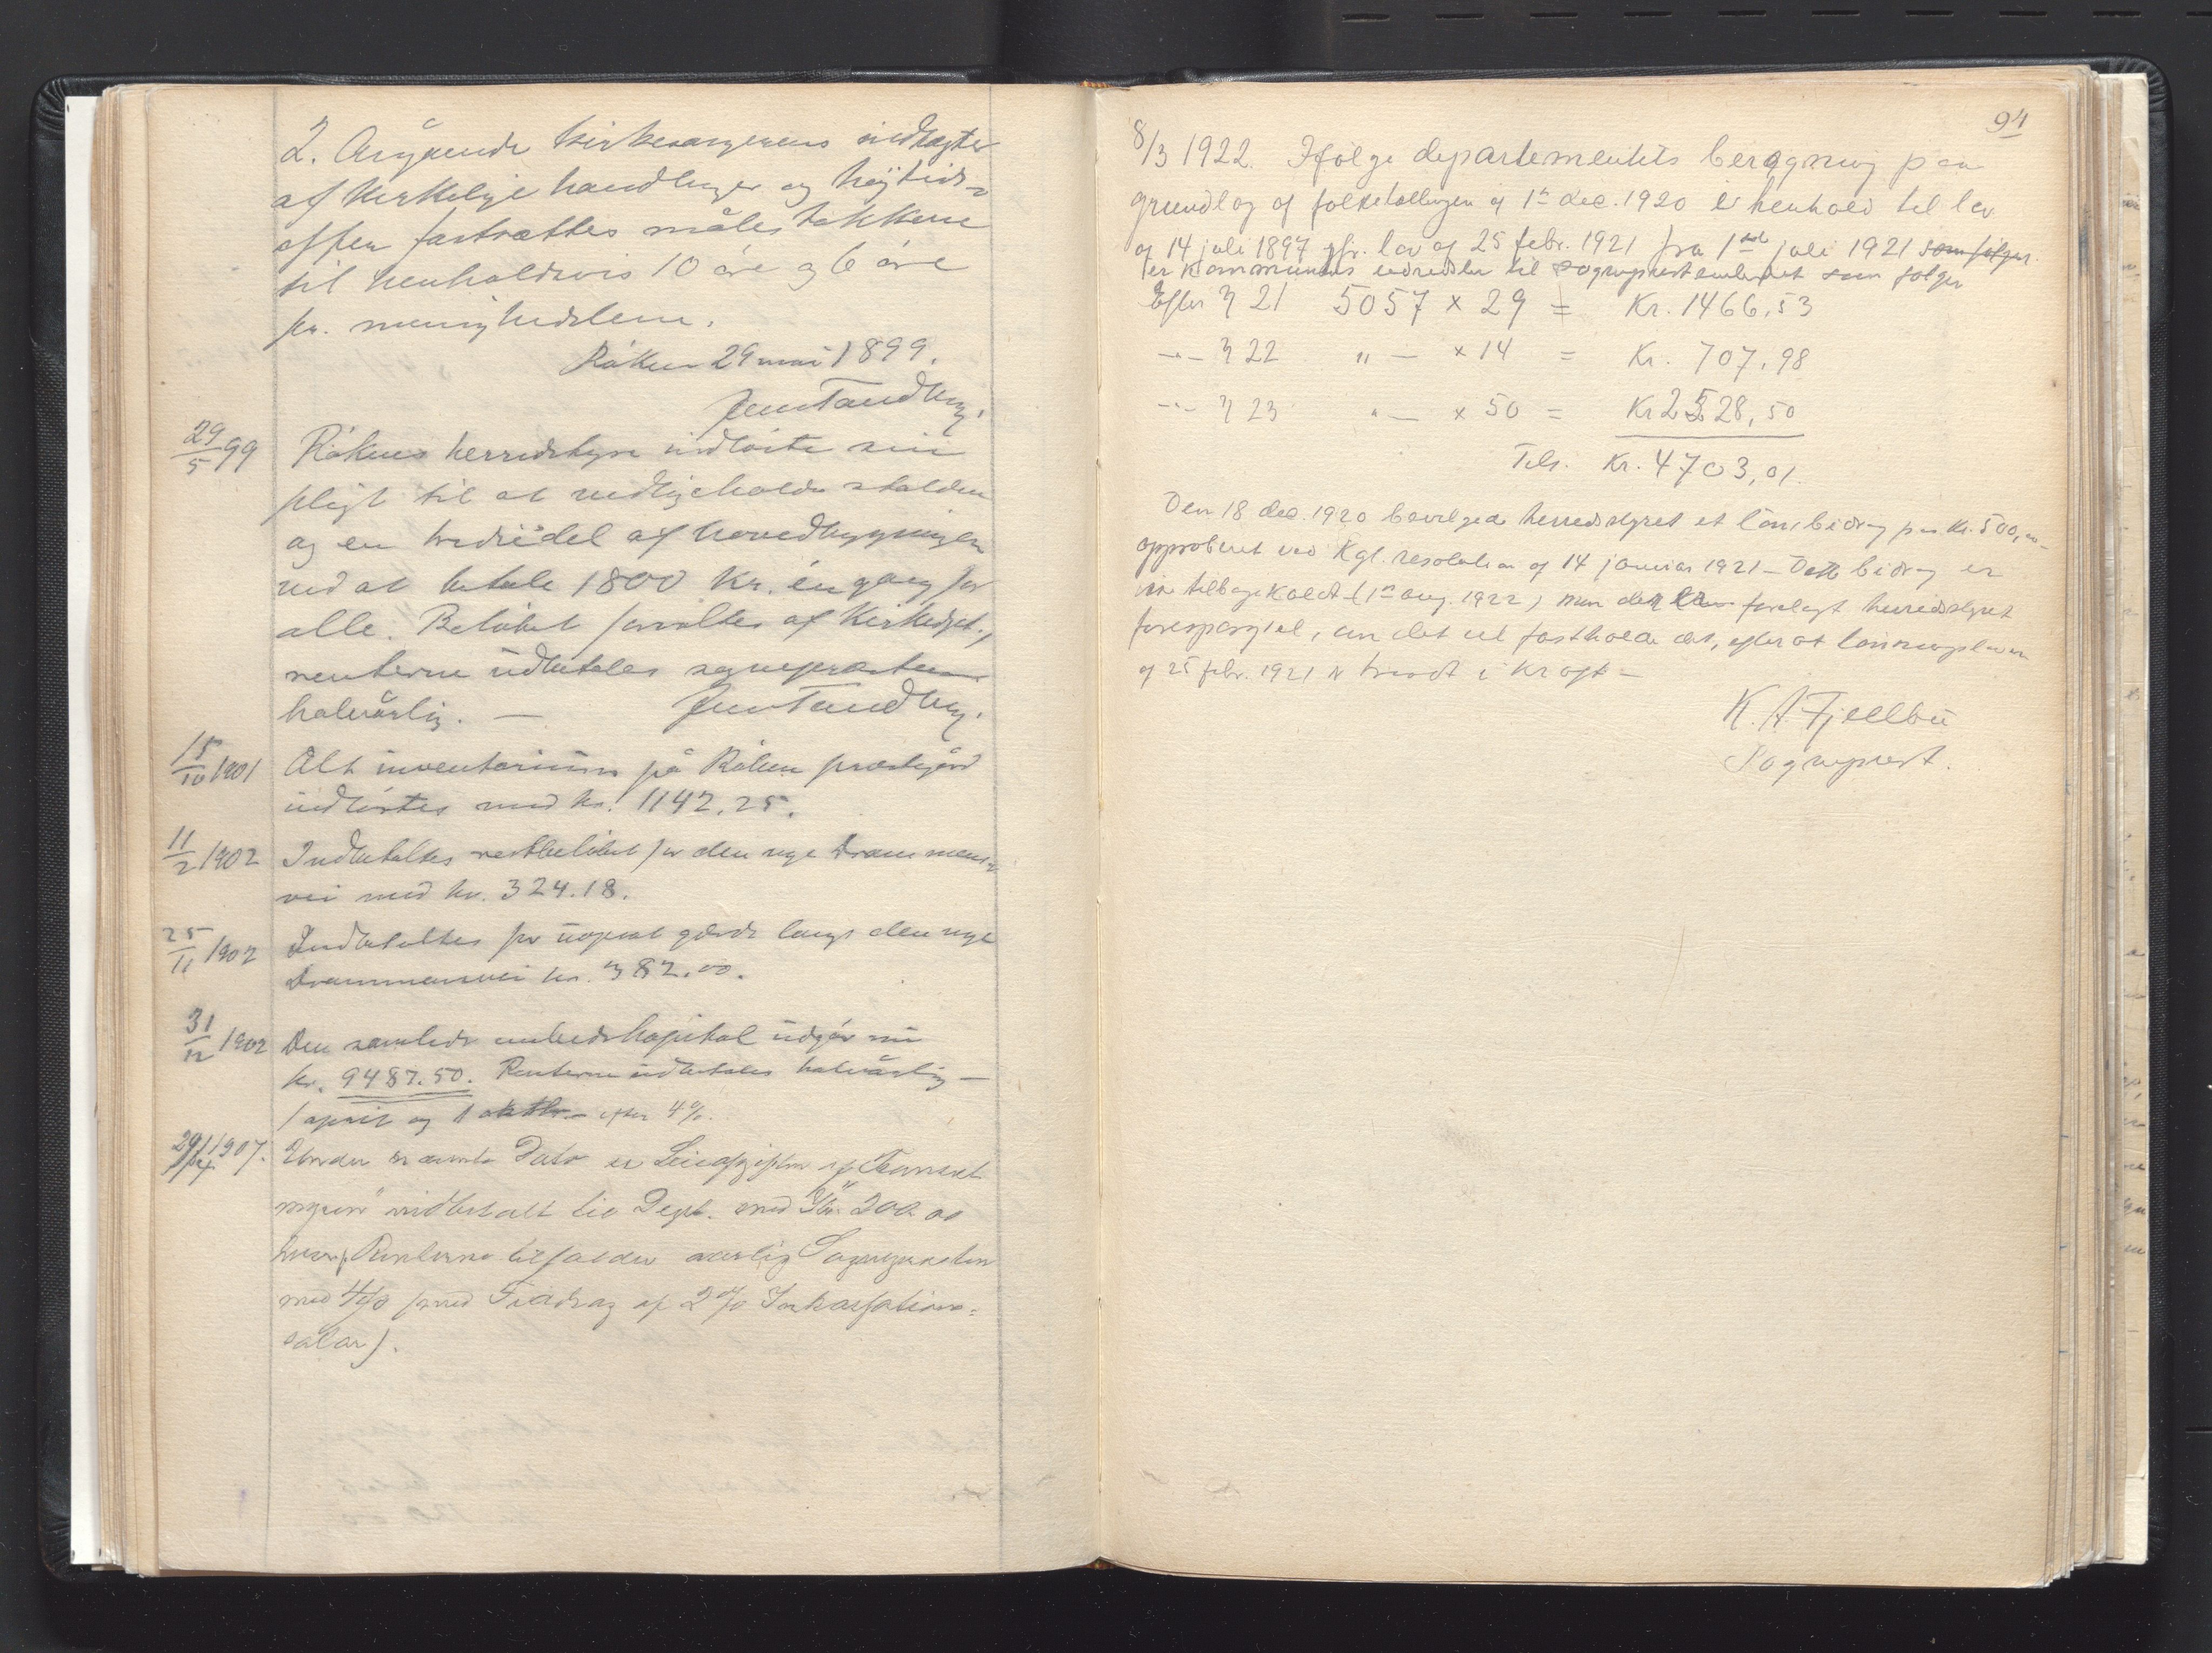 2. Angående kirkesangerens indtægter
af kirkelige handlinger og høitids-
offer fastsættes måles takkene
til henholdsvis 10 øre og 6 øre
pr. menighedslem.
Røken 29 mai 1899.
Jens Tandberg.
29/5 99 Røkens herredstyre indløste sin
pligt til at vedligeholde stalden
og en trediedel af hovedbygningen
ved at betale 1800 kr. én gang for
alle. Beløbet forvaltes af Kirkedept.,
renterne udbetales sognepræsten
halvårlig. — Jens Tandberg.
15/10 1901 Alt inventarium på Røken præstegård
indløstes med kr. 1142.25.
11/2 1902 Indbetaltes restbeløbet for den nye Drammens-
vei med kr. 324.18.
25/11 1902 Indbetaltes for opsat gjerde langs den nye
Drammensvei kr. 382.00.
31/12 1902 Den samlede embedskapital udgør nu
kr. 9487.50. Renterne udbetales halvårlig —
1 april og 1 oktbr. — efter 4%.
29/4 1907. Under nævnte Dato er Leieafgiften af
myren" indbetalt til Dept. med Kr. 200.00
hvoraf Renterne tilfalder aarlig Sognepræsten
med 4% (med Fradrag af 2% Inkassations-
salær).
94
8/3 1922. Ifølge departementets beregning paa
grundlag af folketællingen af 1ste dec. 1920 i henhold til lov
af 14 juli 1897 jfr. lov af 25 febr. 1921 fra 1ste juli 1921 som følger
er kommunens udredsler til sogneprestembedet som følger
Efter § 21 5057 × 29 = Kr. 1466,53
—"— § 22 " — × 14 = Kr. 707,98
—"— § 23 " — × 50 = Kr 2528,50
Tils. Kr. 4703,01.
Den 18 dec. 1920 bevilgede herredstyret et lønsbidrag paa Kr. 500,00
approberet ved Kgl. resolution af 14 januar 1921 — Dette bidrag er
ikke tilbagekaldt (1ste aug. 1922) men der er forelagt herredstyret
forespørgsel, om det vil fastholde det, efter at lønningsloven
af 25 febr. 1921 er traadt i kraft —
K. A. Fjellbu
Sogneprest.